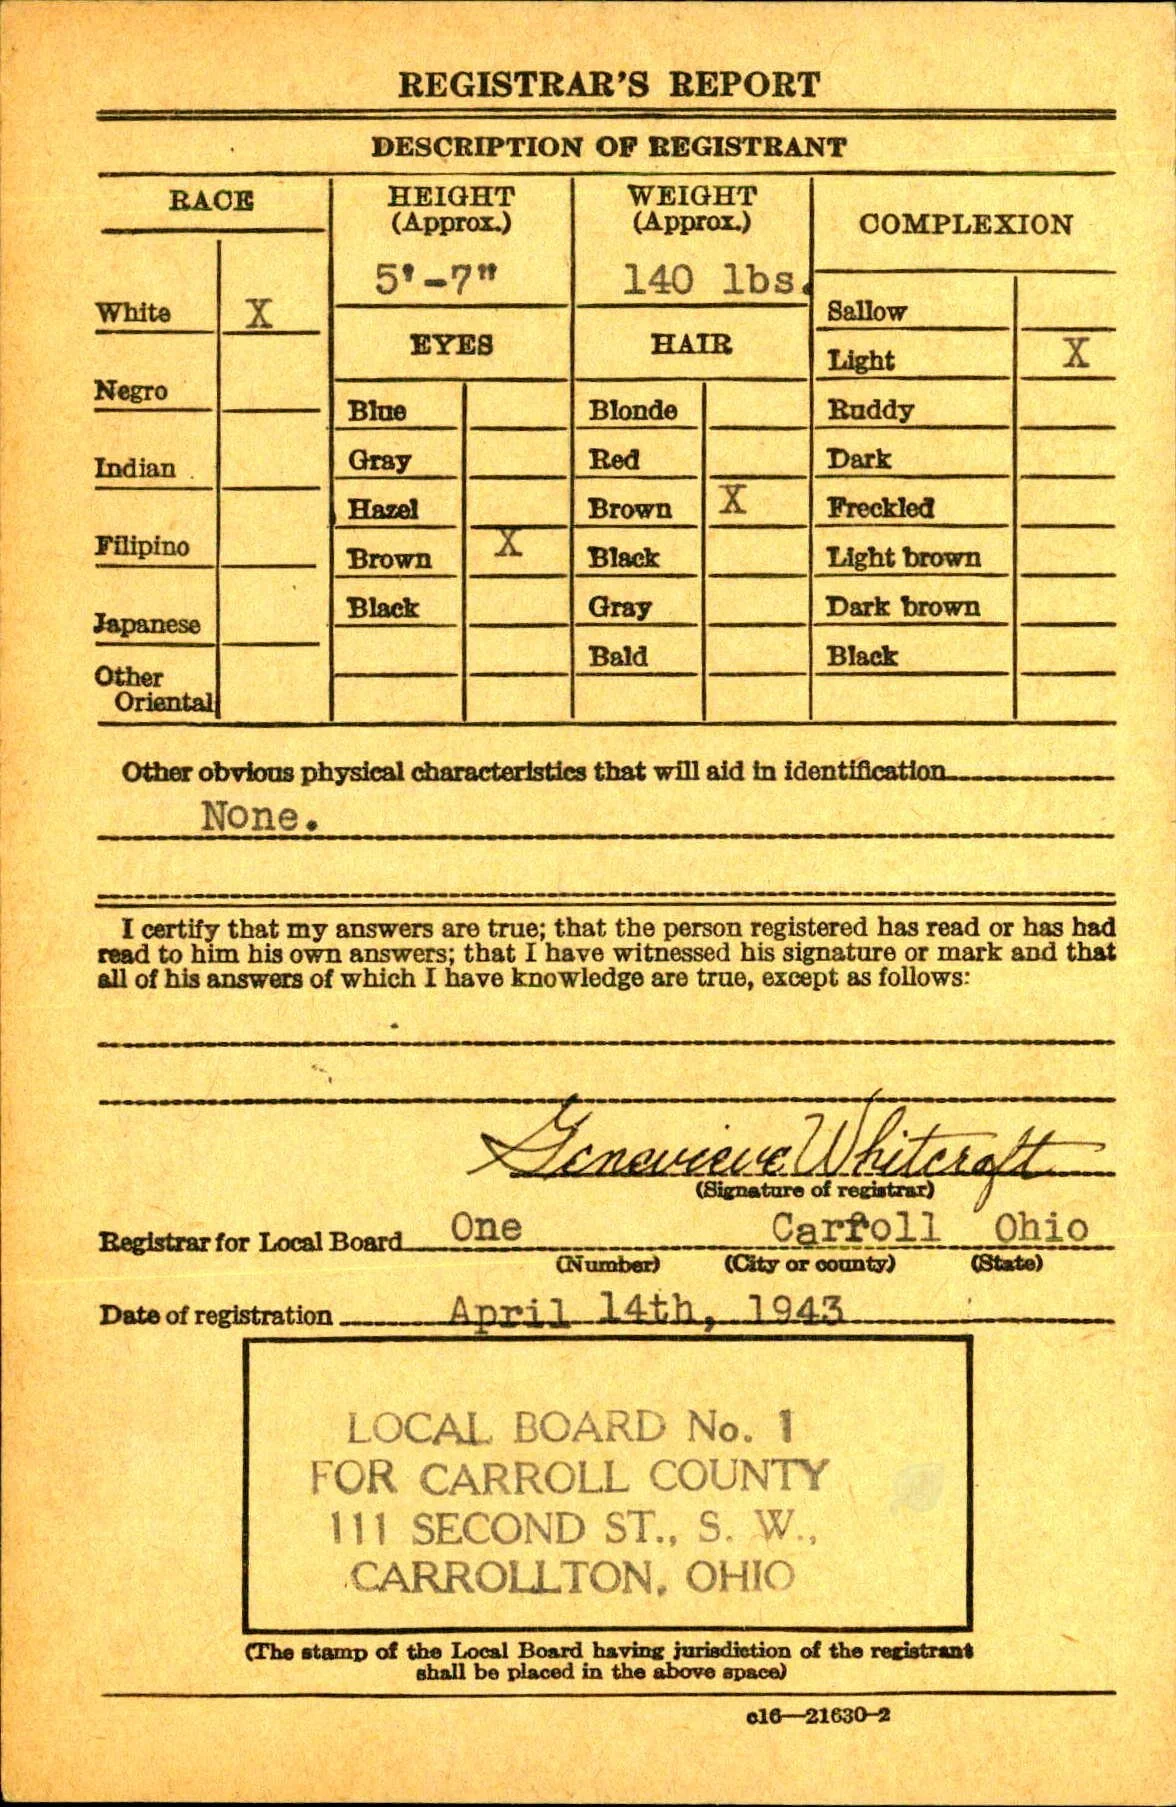 REGISTRAR'S REPORT
DESCRIPTION OF REGISTRANT
RACE
HEIGHT
(Approx.)
WEIGHT
(Approx.)
COMPLEXION
5'-7"
140 lbs.
White X
Sallow
EYES
HAIR
Light X
Negro
Blue
Blonde
Ruddy
Indian
Gray
Red
Dark
Hazel
Brown X
Freckled
Filipino
Brown X
Black
Light brown
Japanese
Black
Gray
Dark brown
Other
Oriental
Bald
Black
Other obvious physical characteristics that will aid in identification
None.
I certify that my answers are true; that the person registered has read or has had
read to him his own answers; that I have witnessed his signature or mark and that
all of his answers of which I have knowledge are true, except as follows:
Genevieve Whitcraft
(Signature of registrar)
Registrar for Local Board One Carroll Ohio
(Number) (City or county) (State)
Date of registration April 14th, 1943
LOCAL BOARD No. 1
FOR CARROLL COUNTY
111 SECOND ST., S. W.,
CARROLLTON, OHIO
(The stamp of the Local Board having jurisdiction of the registrant
shall be placed in the above space)
c16—21630-2